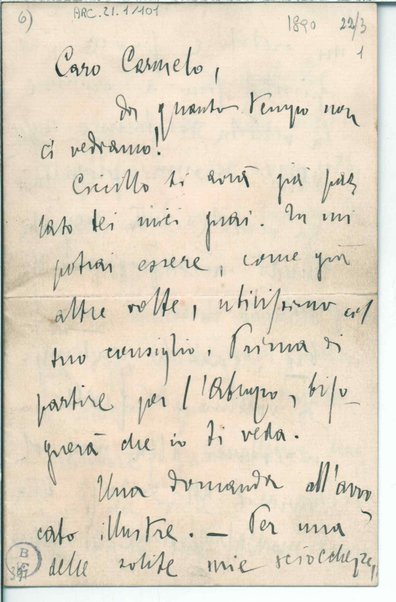 6)
ARC.21.1/101
1890
22/3
1
Caro Carmelo,
da quanto tempo non
ci vediamo!
Ciccillo ti avrà già par
lato dei miei guai. Tu mi
potrai essere, come già
altre volte, utilissimo col
tuo consiglio. Prima di
partire per l'Abruzzo, biso-
gnerà che io ti veda.
Una domanda all'avvo-
cato illustre. — Per una
delle solite mie sciocchezze,
B